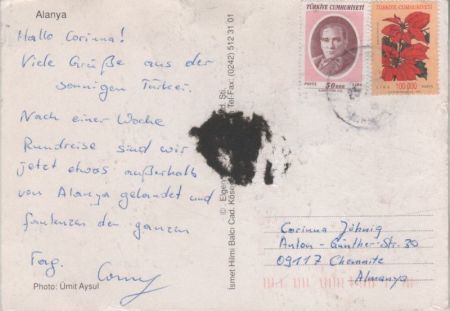 Alanya
Hallo Corinna!
Viele Grüße aus der
sonnigen Türkei.
Nach einer Woche
Rundreise sind wir
jetzt etwas außerhalb
von Alanya gelandet und
faulenzen den ganzen
Tag.
Photo: Ümit Aysul
İsmet Hilmi Balcı Cad. Köse
Tel-Fax: (0242) 512 31 01
TÜRKİYE CUMHURİYETİ
POSTA
LİRA
50 000
TÜRKİYE CUMHURİYETİ
LİRA
100.000
Corinna Jähnig
Anton-Günther-Str. 30
09117 Chemnitz
Almanya